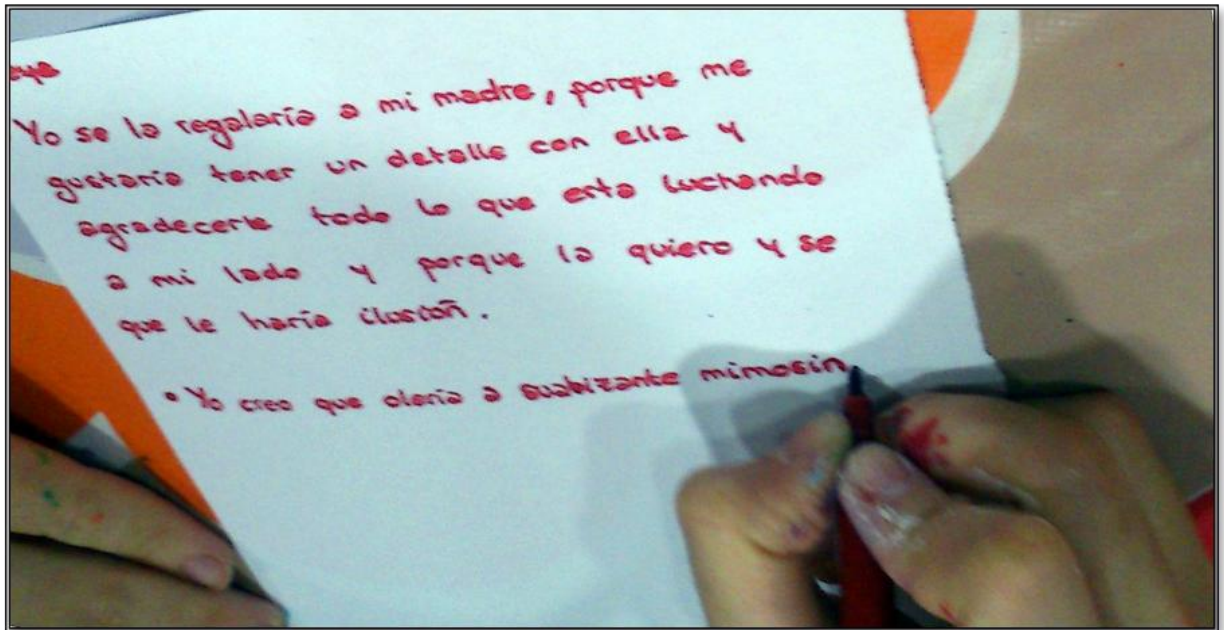 Yo se la regalaría a mi madre, porque me
gustaría tener un detalle con ella y
agradecerle todo lo que esta luchando
a mi lado y porque la quiero y se
que le haría ilusión.
• Yo creo que olería a suabizante mimosin.